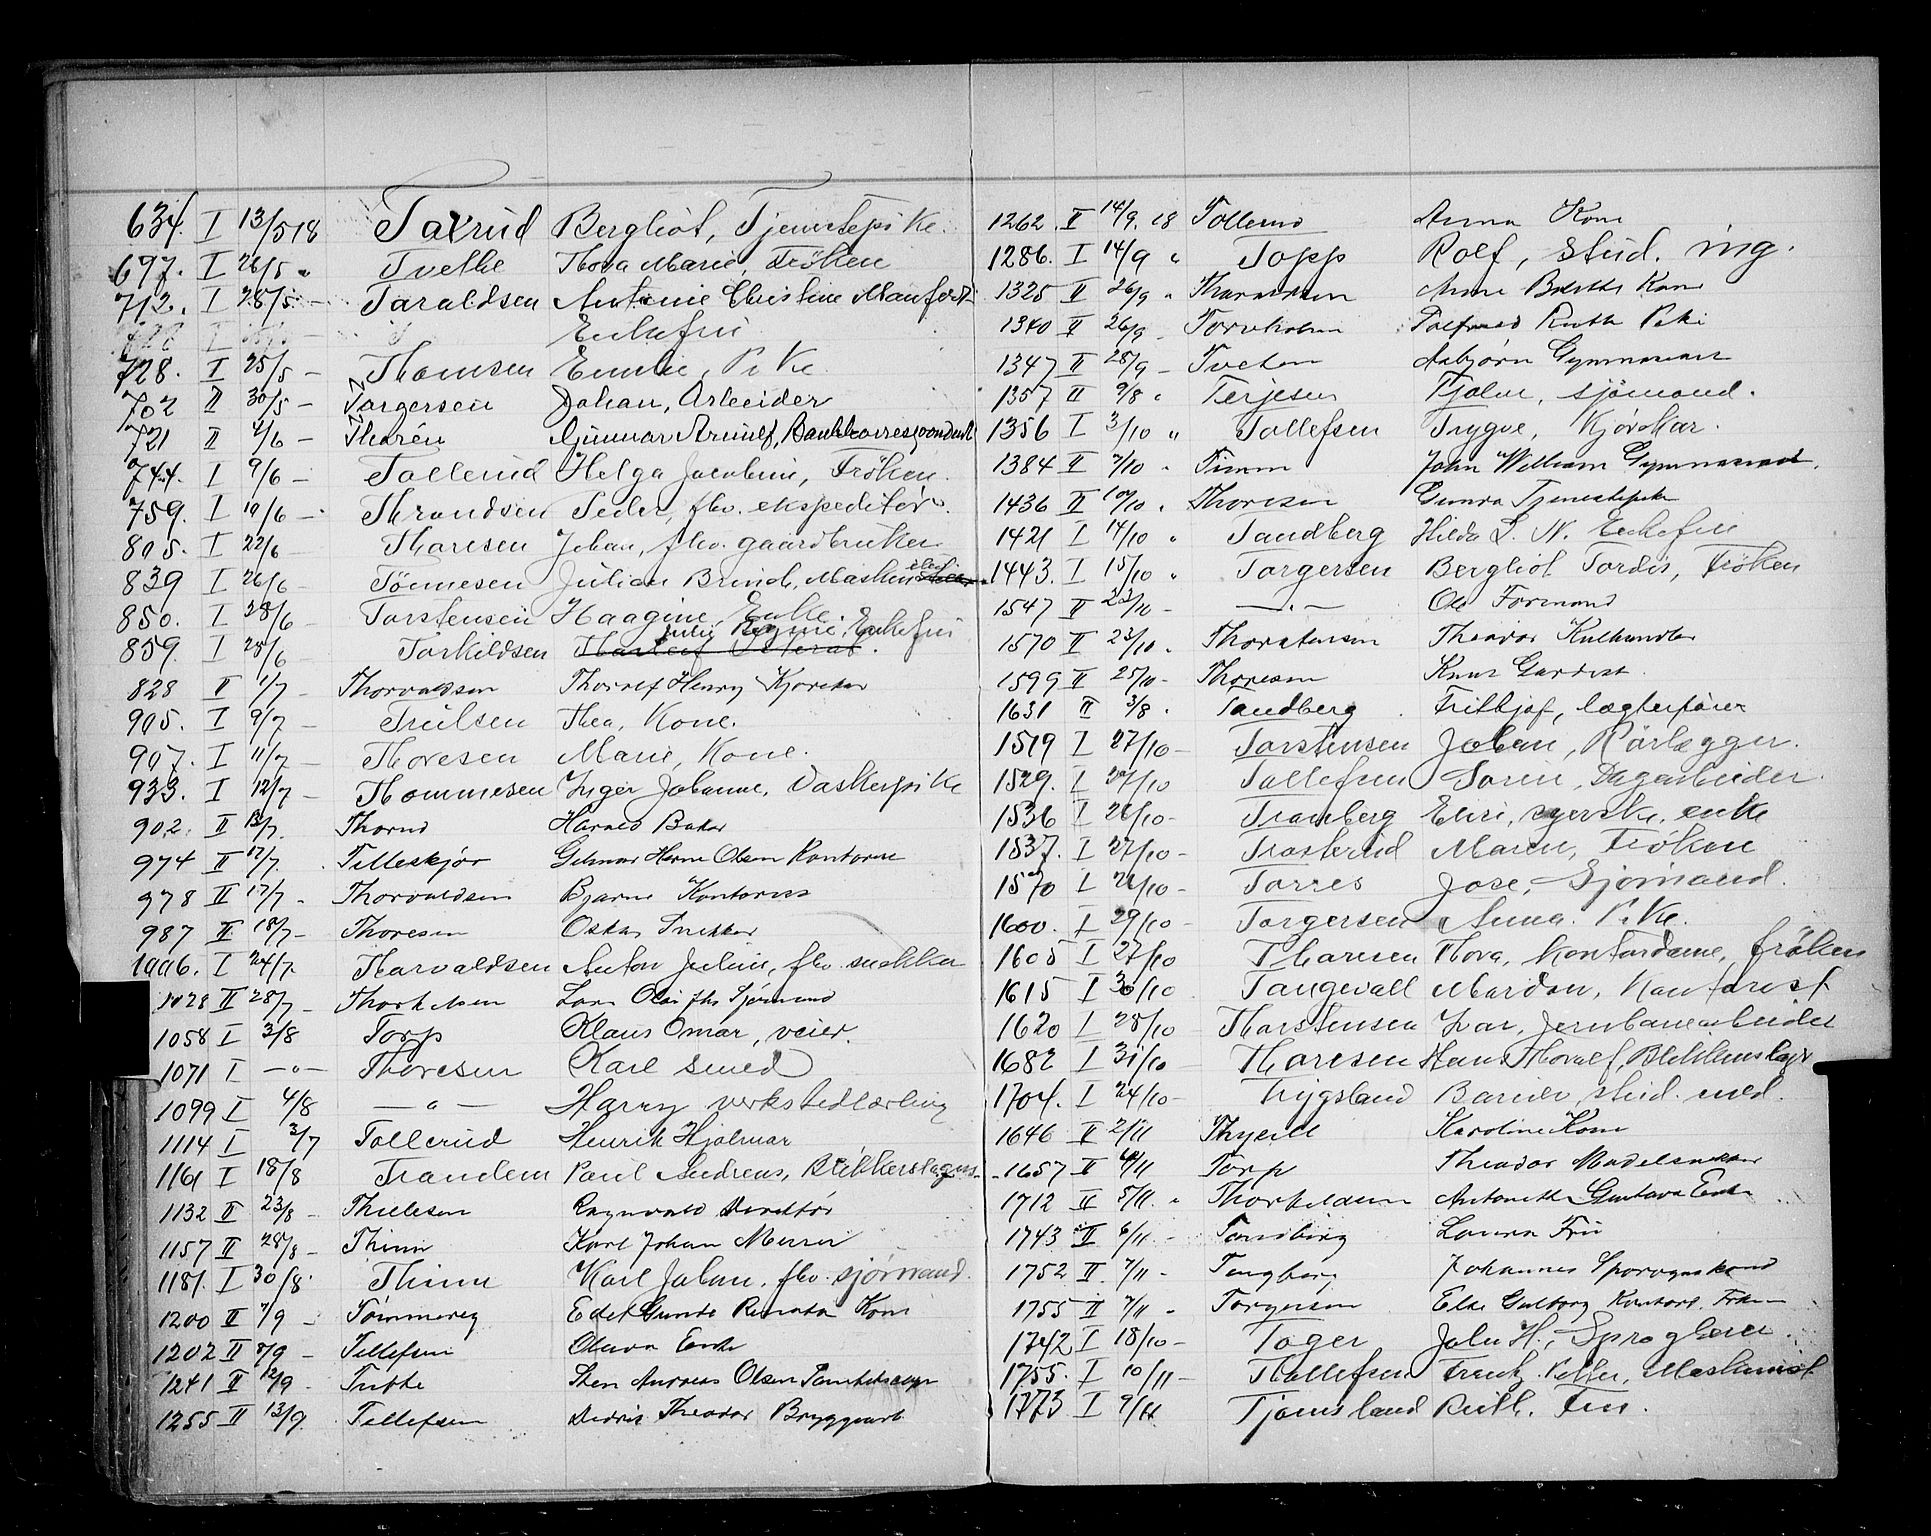 634. I 13/5 18 Taxrud Bergliot, Tjenestepike.
697. I 26/5 " Tvethe Thora Marie, Frøken
712. I 28/5 - Taraldsen Antonie Christine
Enkefru
728. I 25/5 - Thomsen Emilie, Pike
702 II 30/5 - Torgersen Johan, Arbeider
721 II 4/6 - Thorén Gunnar Arnulf, Bankkorrespondent
744 I 9/6 - Tollerud Helga Jacobine, Frøken.
759. I 19/6 - Throndsen Peder, fhv. ekspeditør.
805. I 22/6 Thoresen Johan, fhv. gaardbruker
839 I 26/6 - Tønnesen Julian Brinch, Maskin
850. I 28/6 - Torstensen Haagine, Enke.
Julie Regine, Enkefru
859. I 28/6 Torkildsen
828 II 1/7 - Thorvaldsen Thorolf Henry Kjøresvend
905. I 9/7 - Trulsen Thea, Kone.
907. I 11/7 - Thoresen Marie, Kone.
933. I 12/7 - Thommesen Inger Johanne, Vaskepike
902. II 13/7. Thorud Harald Baker
974 II 17/7. Telleskjør Gelmar Herm Olsen Kontorist
978 II 17/7 - Thorvaldsen Bjarne Kontorist
987 II 18/7 - Thoresen Oskar Snekker
1006. I 24/7 Thorvaldsen Anton Julius, fhv. snekker
1028 II 28/7 - Thorkelsen Lars Olai fhv Sjømand
1058 I 3/8 Torp Klaus Omar, veier.
1071 I -"- Thoresen Karl smed
1099 I 4/8 -"- Harry verkstedlærling
1114 I 3/7 Tollerud Henrik Hjalmar
1161 I 18/8 Trandem Paul Andreas, Blikkenslager
1132 II 23/8 - Thielesen Ragnvald Direktør
1157 II 28/8 - Thinn Karl Johan Murer
1181. I 30/8. Thinn Karl Johan, fhv. sjømand.
1200 II 7/9 - Tømmereg Edel Gunda Renata Kone
1202 II 8/9 - Tellefsen Olava Enke
1241 II 12/9 - Tufte Sten Andreas Olsen
1255 II 13/9. Tellefsen Didrik Theodor Bryggevakt
1262. II 14/9. 18 Tollerud Anna Kone
1286. I 14/9 " Topp Rolf, stud. ing.
1325 II 26/9 " Thoraldsen Anne Berthe Kone
1340 II 26/9 - Torvholm Ruth Pike
1347 II 28/9 - Tveten Asbjørn Gymnasiast
1357 II 9/8 " Terjesen Tjalve, sjømand.
1356 I 3/10 " Tollefsen Trygve, Kjørekar.
1384 II 7/10 " Timm John William Gymnasiast.
1436 II 10/10 " Thoresen Gunda Tjenestepike
1421 I 14/10 " Sandberg Hilda L. N. Enkefru
1443. I 15/10 " Torgersen Bergliot Tordis, Frøken
1547 II 23/10 - -"- Ole Formand
1570 II 23/10 " Thorstensen Theodor Kulhandler
1599 II 25/10 - Thoresen Knut Gardist
1631 II 3/8 . Tandberg Fritjof, lægterfører
1519 I 27/10 - Torstensen Johan, Rørlægger.
1529. I 27/10 Tollefsen Søren, Dagarbeider.
1536 I 26/10 - Tranberg Elise, syerske, enke
1537. I 27/10 - Trosterud Maren, Frøken
1570 I 26/10 - Torres Jose, Sjømand.
1600. I 29/10 - Torgersen Anna. Pike.
1605 I 27/10 Thoresen Thora, Kontordame, frøken
1615 I 30/10 Tangevall Mardon, Kontorist
1620 I 28/10 - Thorstensen Ivar, Jernbanearbeider
1682 I 31/10 Thoresen Hans Thorolf, Blikkenslager
1704. I 24/10 - Trygsland Barder, stud. med.
1646 II 2/11 Thyeill Karoline Kone
1657 II 4/11 Torp Theodor Modelsnekker
1712 II 5/11. " Thorkildsen Antonette Gustava Enke
1743 II 6/11 - Tandberg Laura Fru
1752 II 7/11 - Tengberg Johannes Sporvognskond
1755 II 7/11 " Torgersen Else Gulborg Kontorf. Frøken
1742 I 18/10 - Toger John H., Sproglærer.
1755. I 10/11 - Thollefsen Frenk Petter, Maskinist
1773 I 9/11 Tjomsland Ruth. Fru.